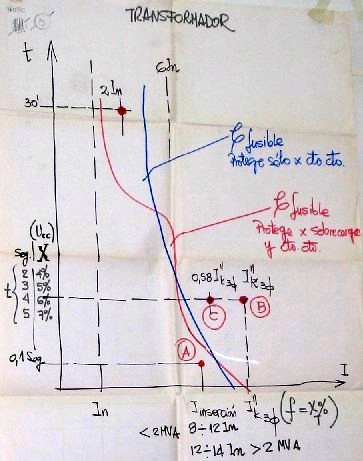 TRANSFORMADOR
t
30'
2In
6In
C fusible
Protege sólo x cto cto.
C fusible
Protege x sobrecarga
y cto. cto.
(Ucc)
Seg. X
2 4%
3 5%
t 4 6%
5 7%
0,58 I"k3ф
I"k3ф
C
B
A
0,1 Seg
I
In
Inserción
I"k3ф (f = X%)
< 2MVA 8÷12 In
12÷14 In > 2 MVA